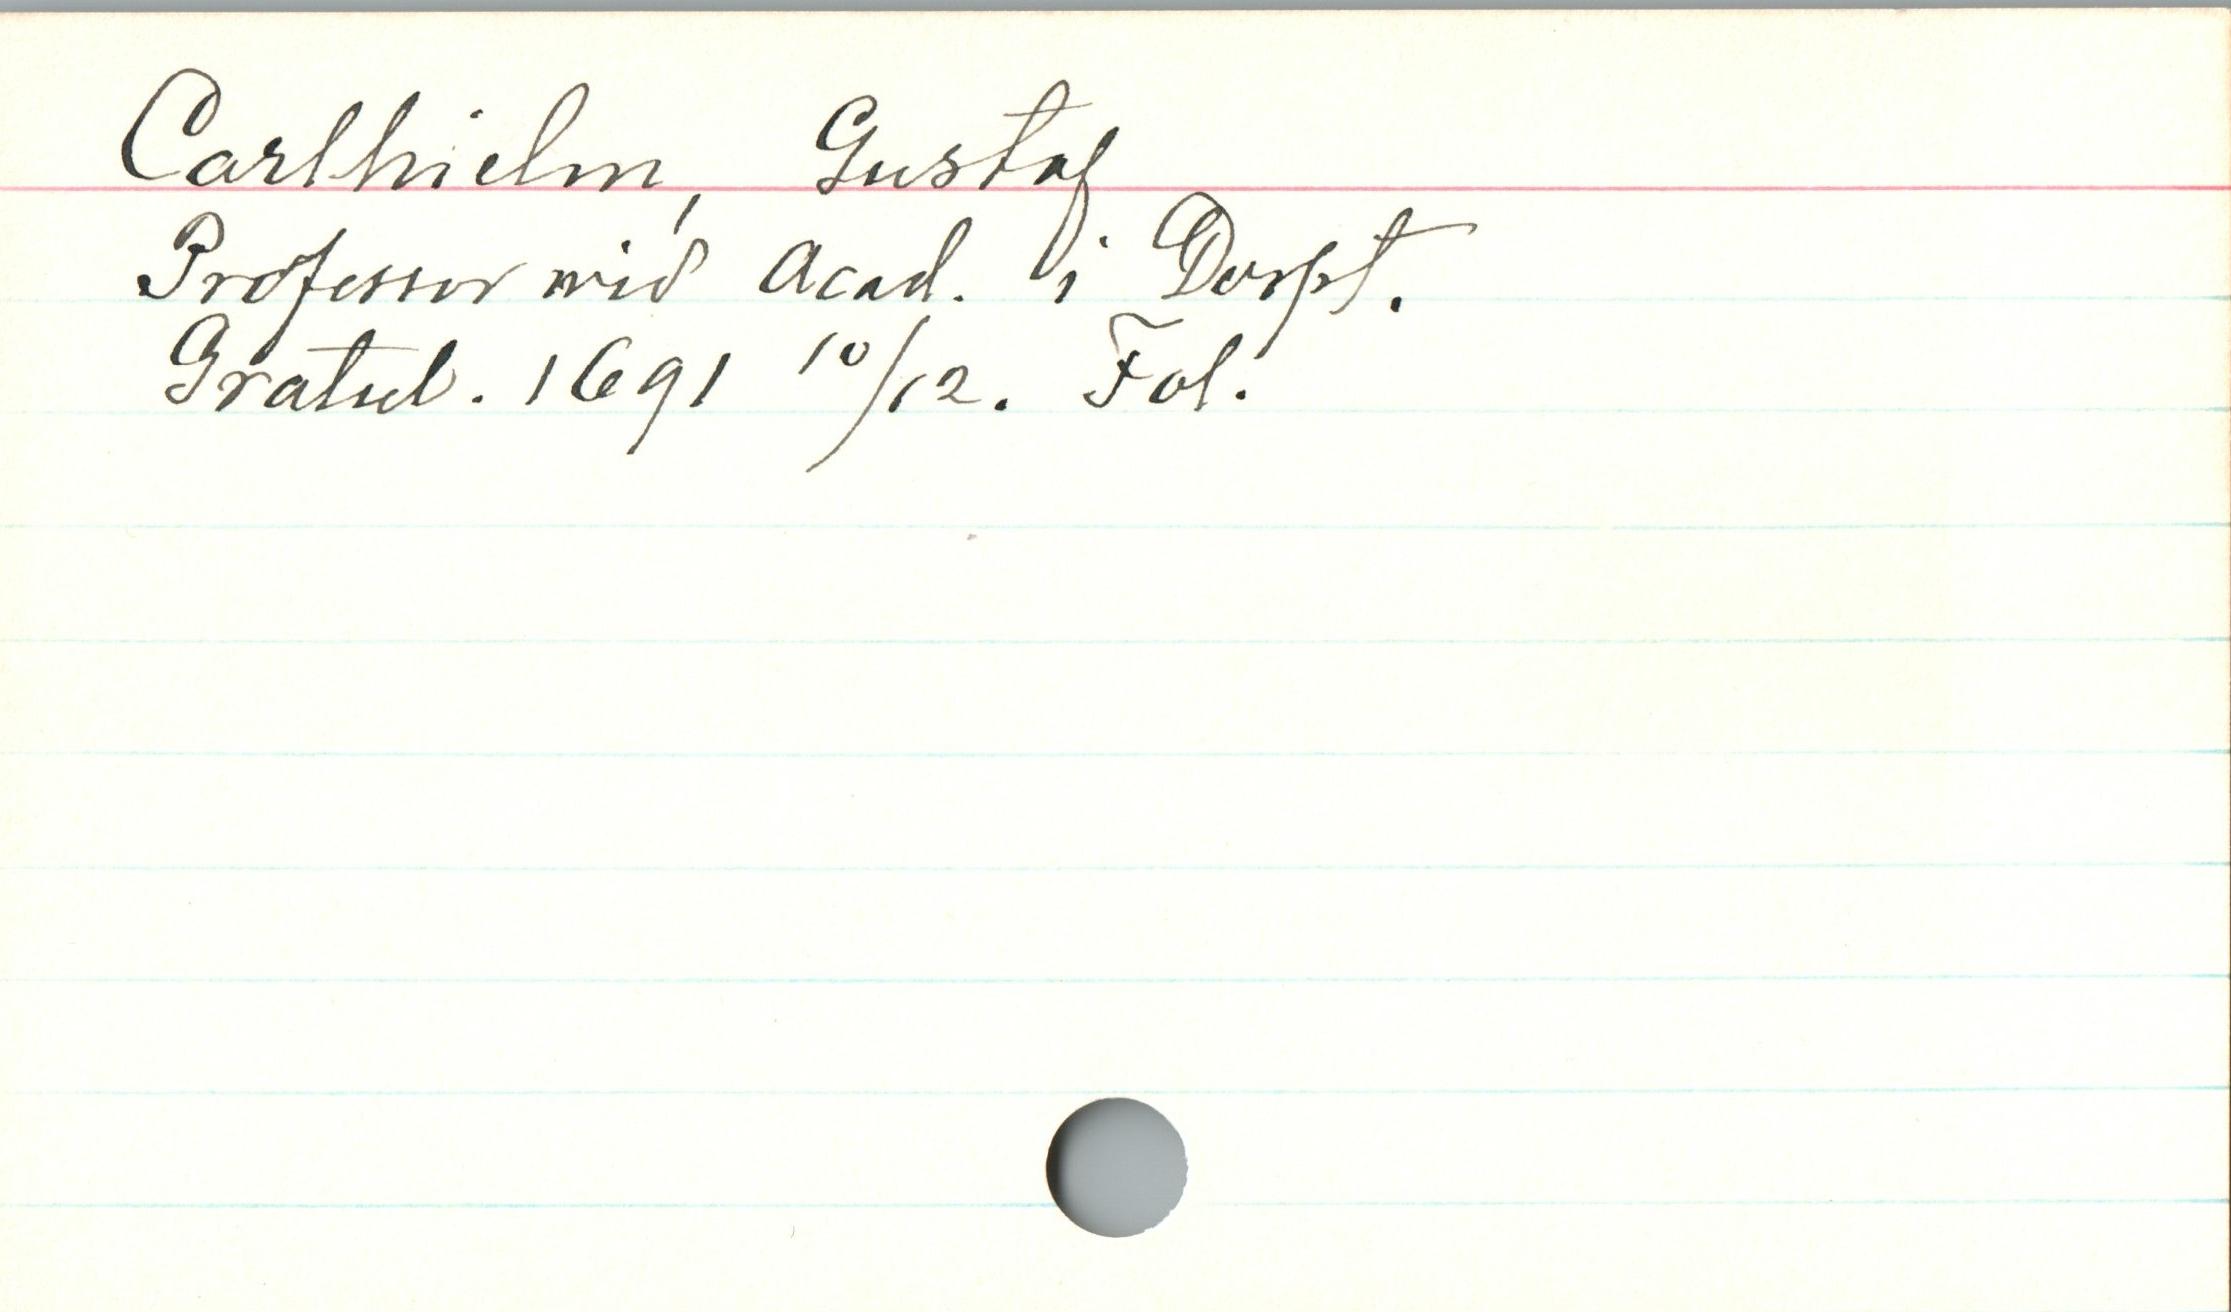 Carlhielm, Gustaf
Professor wid Acad. i Dorpt.
Gratul. 1691 10/12. Fol.